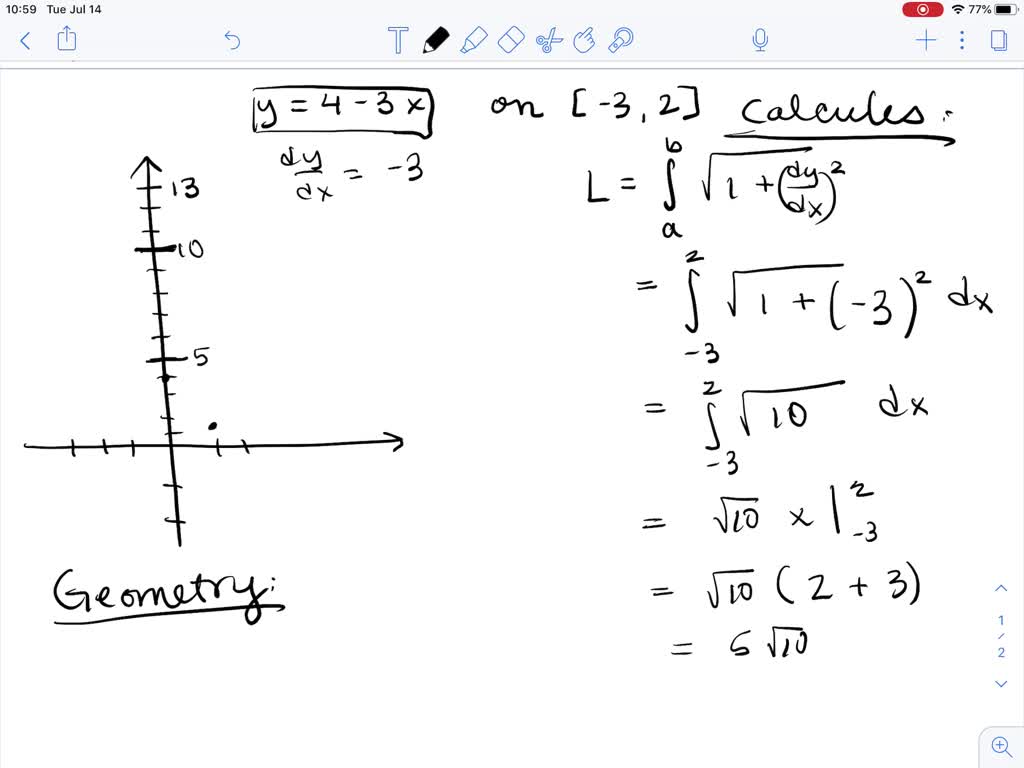 10:59 Tue Jul 14 77%
T
y = 4 - 3x on [-3, 2] Calcules:
dy/dx = -3
L = ∫_a^b √1 + (dy/dx)^2
= ∫_-3^2 √1 + (-3)^2 dx
= ∫_-3^2 √10 dx
= √10 x |_-3^2
= √10 (2 + 3)
= 5 √10
13
10
5
Geometry:
1
/
2